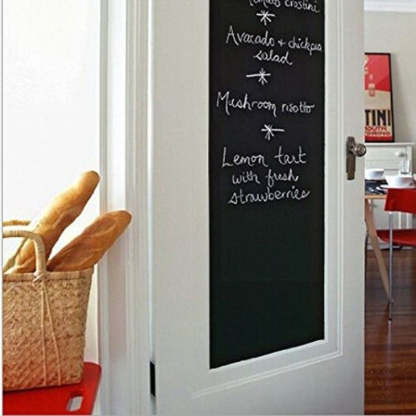 Tomato crostini
Avocado + chickpea
salad
Mushroom risotto
Lemon tart
with fresh
strawberries
TINI